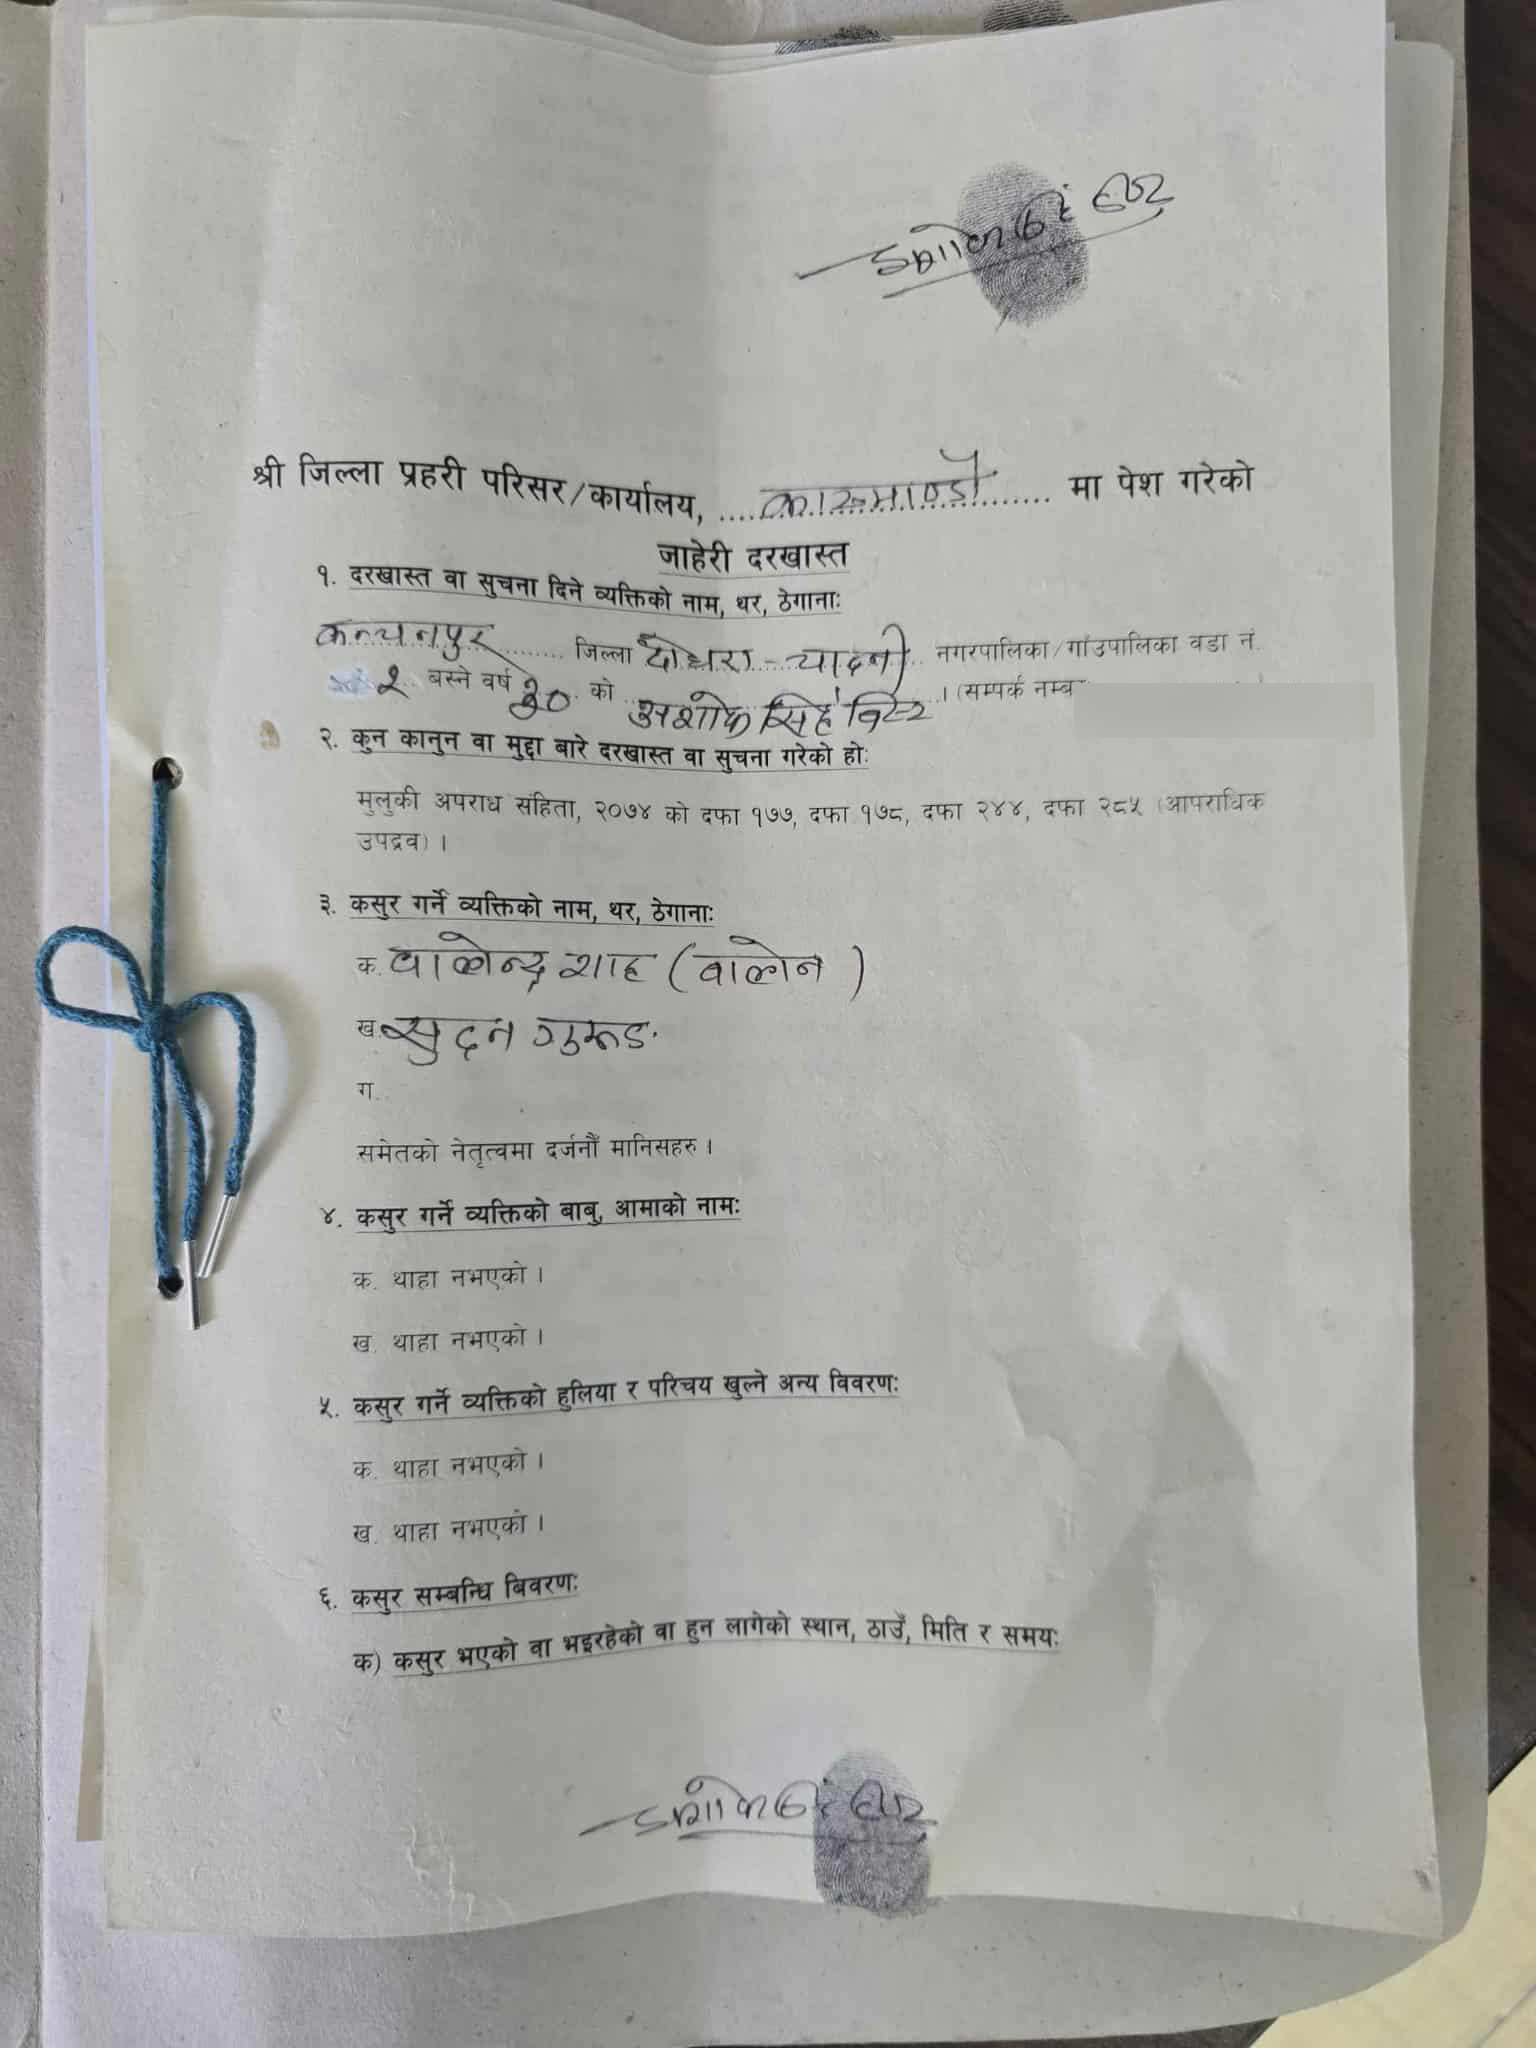 अशोक सिं बिष्ट
श्री जिल्ला प्रहरी परिसर/कार्यालय, काठमाण्डौ मा पेश गरेको
जाहेरी दरखास्त
१. दरखास्त वा सुचना दिने व्यक्तिको नाम, थर, ठेगानाः
कन्चनपुर जिल्ला दोधारा-चादनी नगरपालिका/गाउँपालिका वडा नं.
२ बस्ने वर्ष ३० को अशोक सिंह बिष्ट । (सम्पर्क नम्ब
२. कुन कानुन वा मुद्दा बारे दरखास्त वा सुचना गरेको होः
मुलुकी अपराध संहिता, २०७४ को दफा १७७, दफा १७८, दफा २४४, दफा २८५ (आपराधिक
उपद्रव) ।
३. कसुर गर्ने व्यक्तिको नाम, थर, ठेगानाः
क. वालेन्द्र शाह (वालेन)
ख. सुदन गुरूङ
ग.
समेतको नेतृत्वमा दर्जनौँ मानिसहरु ।
४. कसुर गर्ने व्यक्तिको बाबु, आमाको नामः
क. थाहा नभएको ।
ख. थाहा नभएको ।
५. कसुर गर्ने व्यक्तिको हुलिया र परिचय खुल्ने अन्य विवरणः
क. थाहा नभएको ।
ख. थाहा नभएको ।
६. कसुर सम्बन्धि बिवरणः
क) कसुर भएको वा भइरहेको वा हुन लागेको स्थान, ठाउँ, मिति र समयः
अशोक सिं बिष्ट